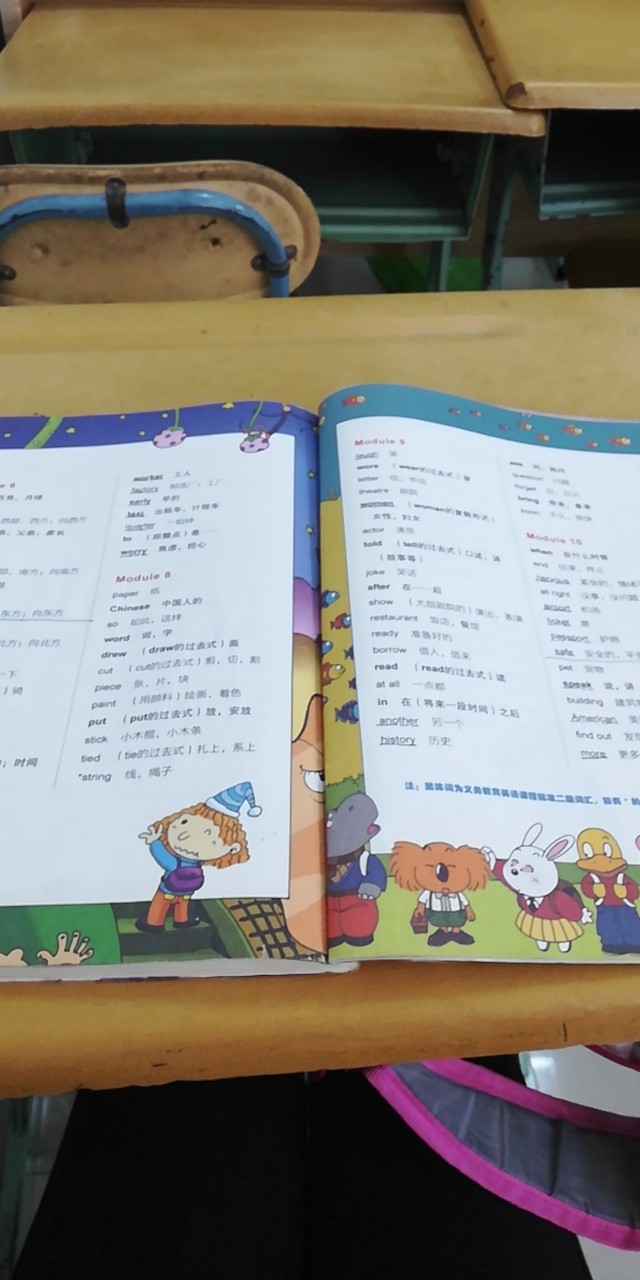 6
月球
西部，西方；向西方
父亲；家长
部，南方；向南方
东方；向东方
北方；向北方
一下
时间
worker 工人
factory 制造厂；工厂
early 早的
taxi 出租车，计程车
quarter 一刻钟
to （距整点）差……
worry 焦虑，担心
Module 8
paper 纸
Chinese 中国人的
so 如此，这样
word 词，字
drew （draw的过去式）画
cut （cut的过去式）剪，切，割
piece 张，片，块
paint （用颜料）绘画，着色
put （put的过去式）放，安放
stick 小木棍，小木条
tied （tie的过去式）扎上，系上
*string 线，绳子
Module 9
laugh 笑
wore （wear的过去式）穿
letter 信，书信
theatre 剧院
women （woman的复数形式）
女性，妇女
actor 演员
told （tell的过去式）口述，讲
（故事等）
joke 笑话
after 在……后
show （尤指剧院的）演出，表演
restaurant 饭店，餐馆
ready 准备好的
borrow 借入，借来
read （read的过去式）读
at all 一点都
in 在（将来一段时间）之后
another 另一个
history 历史
ask 问，询问
question 问题
forget
bring 带来，拿来
soon 不久，很快
Module 10
when 在什么时候
end 结束，终止
all right 没事，没问题
airport 机场
ticket 票
passport 护照
safe 安全的，平
pet 宠物
speak 说，讲
building 建筑
American 美
find out 发
more 更多
注：黑体词为义务教育英语课程标准二级词汇，标有 *